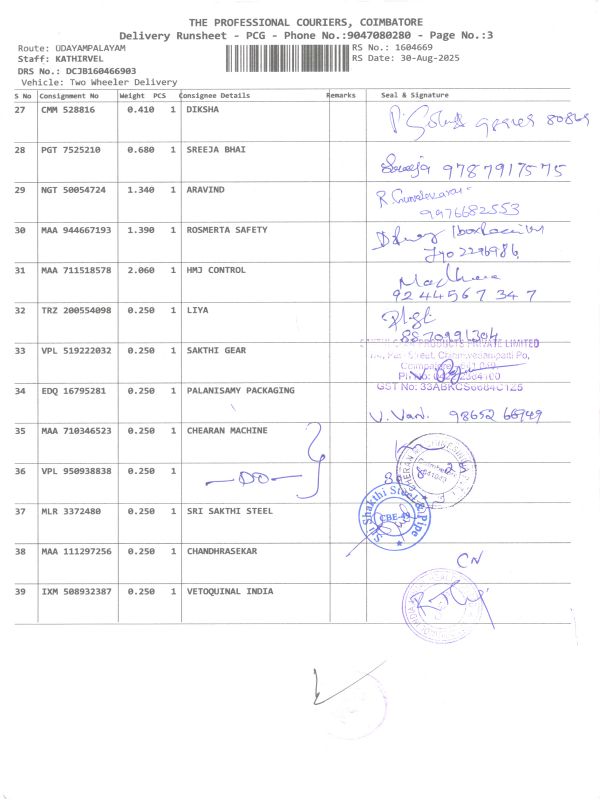 THE PROFESSIONAL COURIERS, COIMBATORE
Delivery Runsheet - PCG - Phone No.:9047080280 - Page No.:3
Route: UDAYAMPALAYAM RS No.: 1604669
Staff: KATHIRVEL RS Date: 30-Aug-2025
DRS No.: DCJB160466903
Vehicle: Two Wheeler Delivery
S No Consignment No Weight PCS Consignee Details Remarks Seal & Signature
27 CMM 528816 0.410 1 DIKSHA
28 PGT 7525210 0.680 1 SREEJA BHAI Sreeja 9787917575
29 NGT 50054724 1.340 1 ARAVIND
9976682553
30 MAA 944667193 1.390 1 ROSMERTA SAFETY
31 MAA 711518578 2.060 1 HMJ CONTROL
9244567347
32 TRZ 200554098 0.250 1 LIYA
8870991304
33 VPL 519222032 0.250 1 SAKTHI GEAR PRODUCTS PRIVATE LIMITED
34 EDQ 16795281 0.250 1 PALANISAMY PACKAGING
V. Vani. 98652 66949
35 MAA 710346523 0.250 1 CHEARAN MACHINE
36 VPL 950938838 0.250 1 -DO-
37 MLR 3372480 0.250 1 SRI SAKTHI STEEL Sri Shakthi Steel & Pipe
38 MAA 111297256 0.250 1 CHANDHRASEKAR CN
39 IXM 508932387 0.250 1 VETOQUINAL INDIA